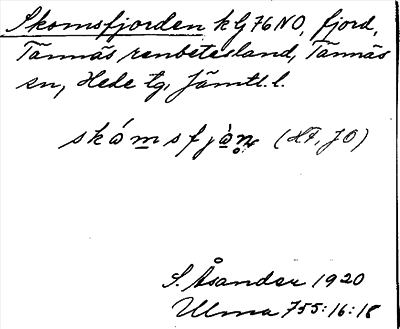 Skomsfjorden kG76NO, fjord,
Tännäs renbetesland, Tännäs
sn, Hede tg, Jämtl. l.
skómsfjàṇ (HF, JO)
S. Åsander 1920
Ulma 755:16:18